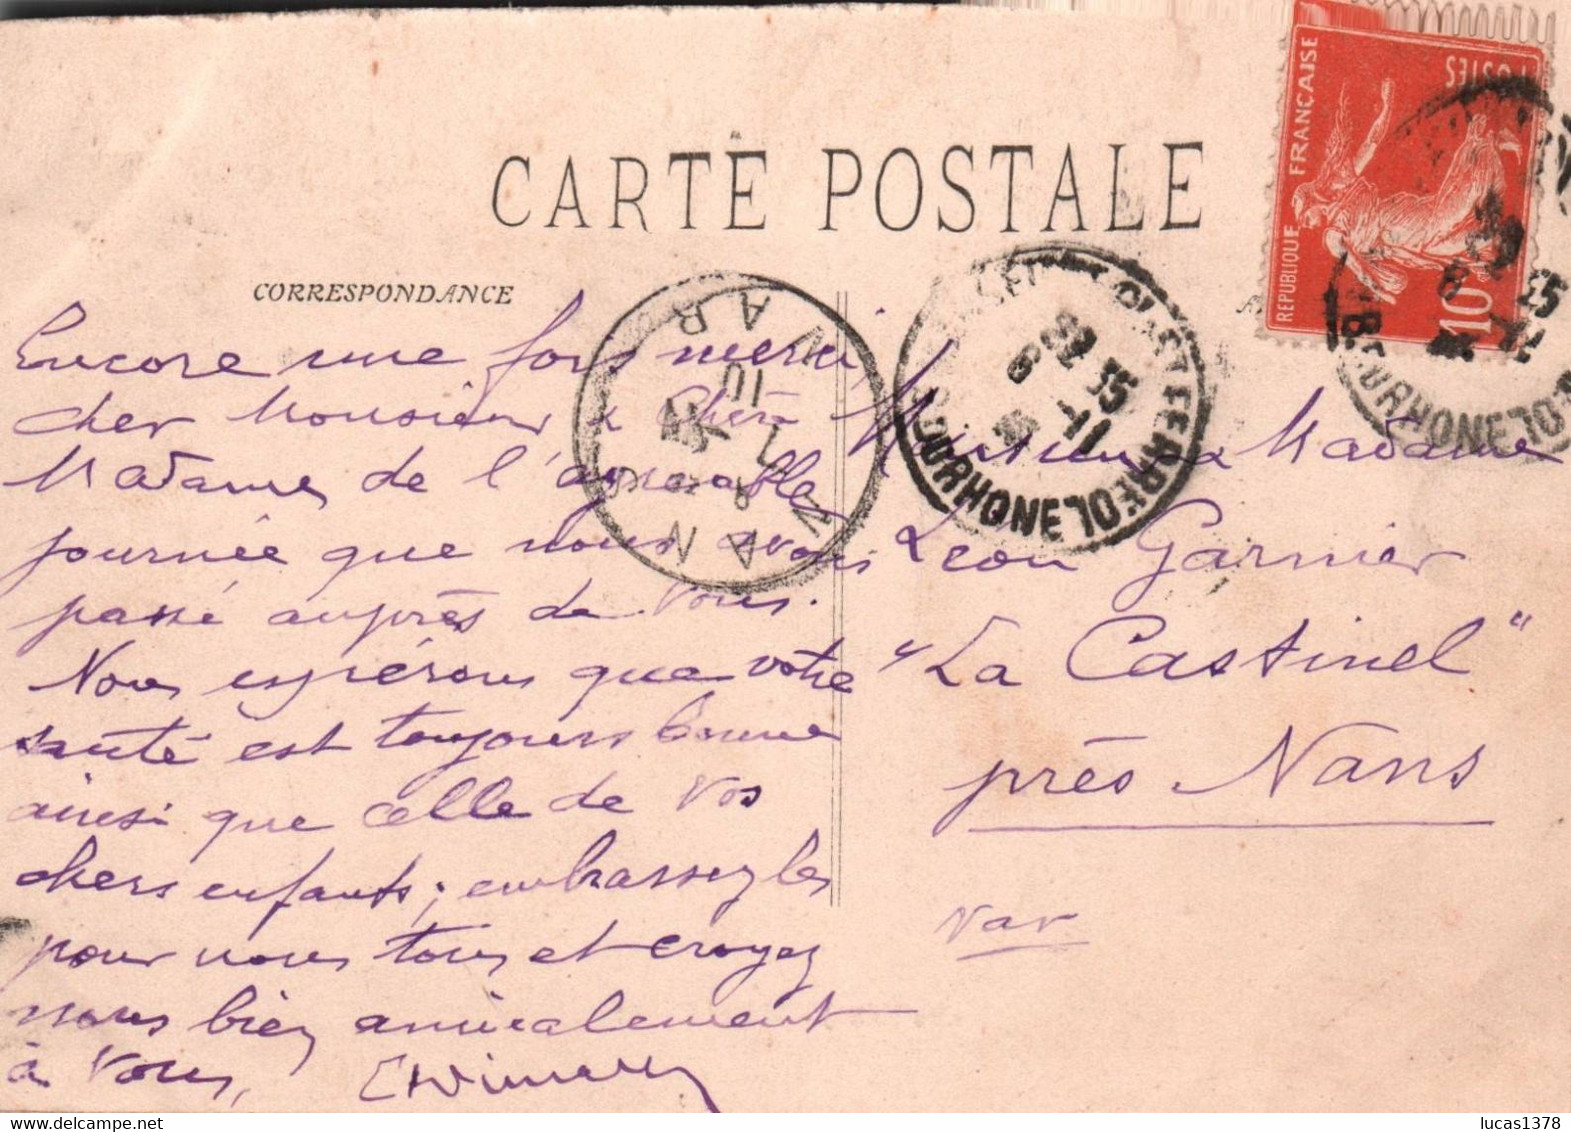 CARTE POSTALE
CORRESPONDANCE
Encore une fois merci,
cher Monsieur & chère
Madame de l'agréable
journée que nous avons
passé auprès de vous.
Nous espérons que votre
santé est toujours bonne
ainsi que celle de vos
chers enfants ; embrassez les
pour nous tous et croyez
nous bien amicalement
à vous,
Monsieur & Madame
Léon Garnier
"La Castinel"
près Nans
Var
REPUBLIQUE FRANÇAISE
POSTES
10
NANS
VAR
35
11
RHONE
lucas1378